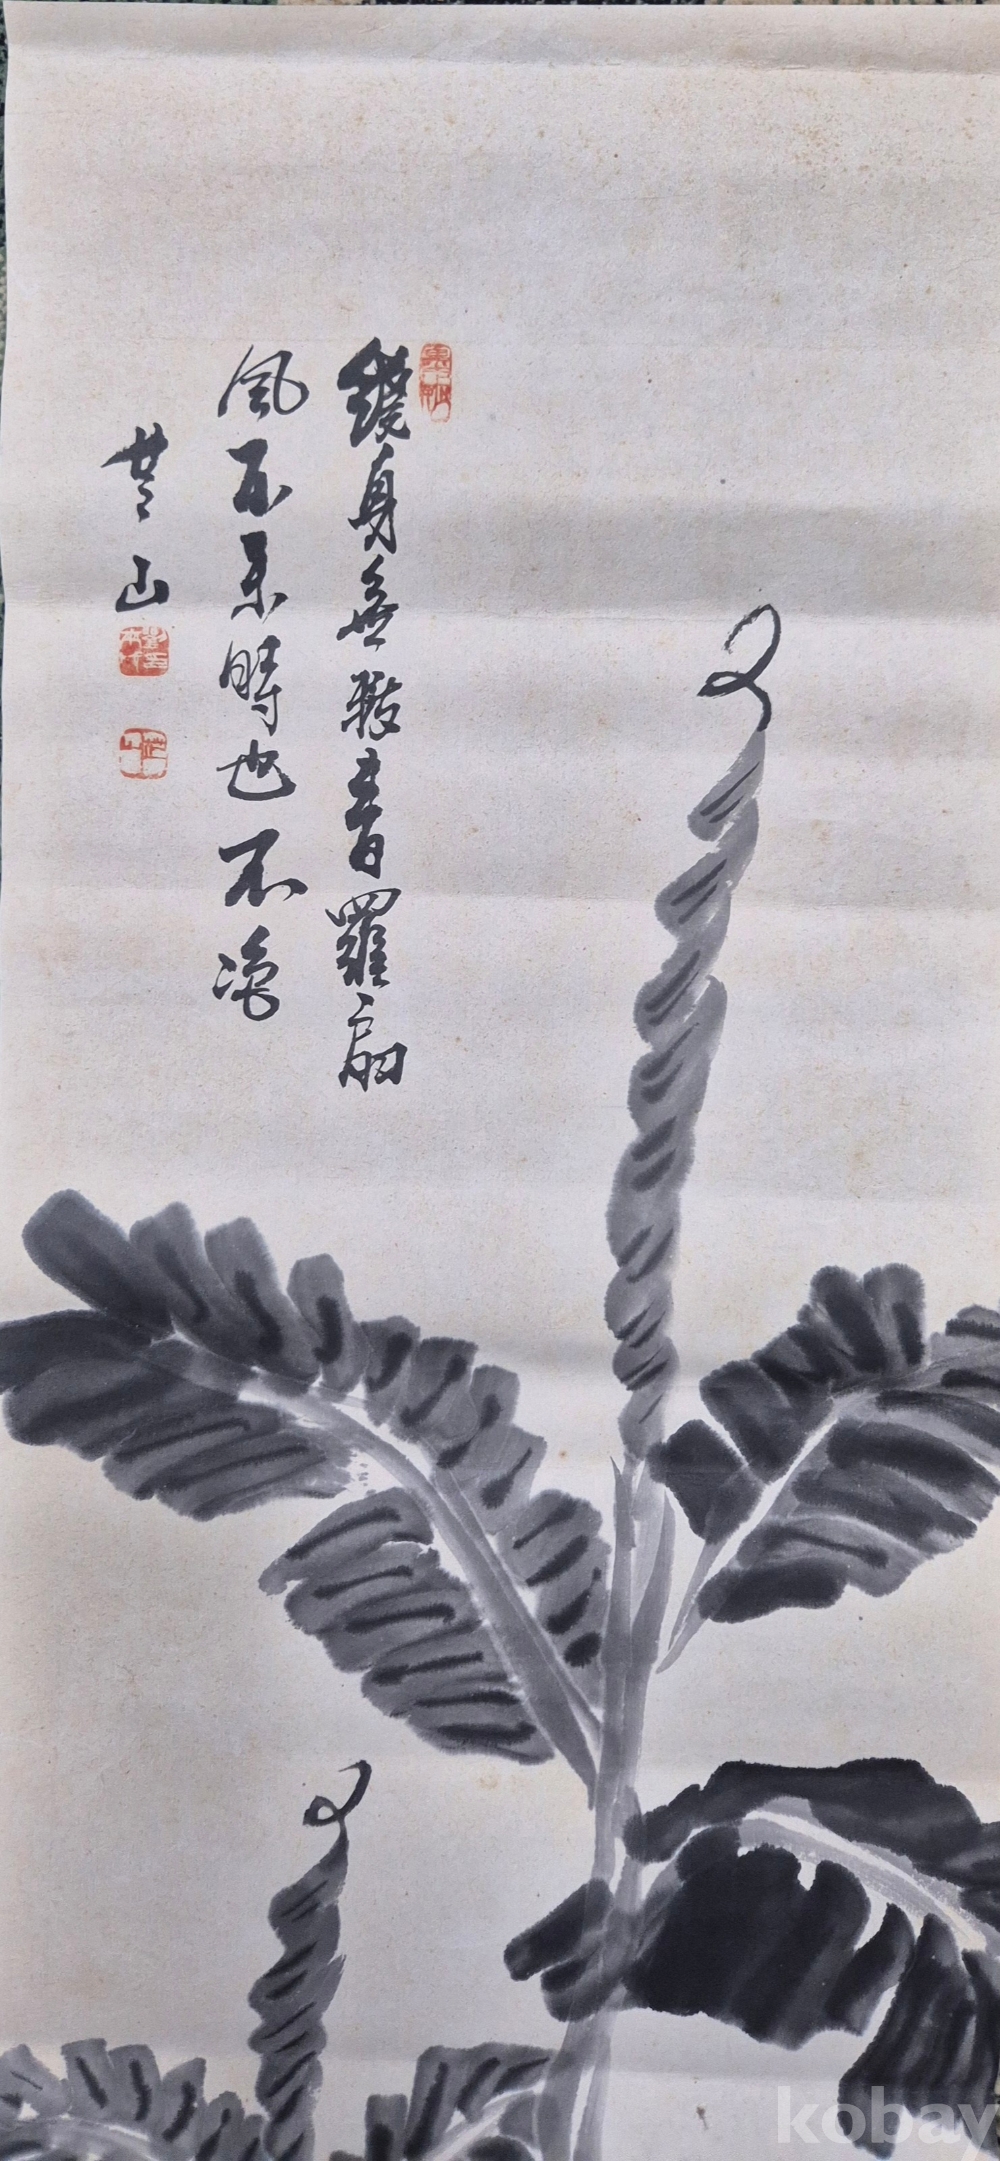 繞身無數青羅扇
風不來時也不凉
山
kobay